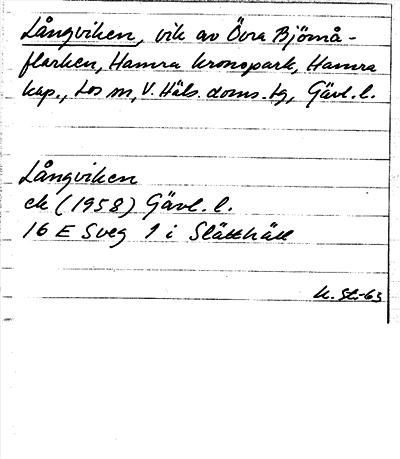 Långviken, vik av Övra Björnå-
flarken, Hamra kronopark, Hamra
kap., Los sn, V. Häls. doms. tg, Gävl. l.
Långviken
ek (1958) Gävl. l.
16 E Sveg 1 i Slätthäll
K. St.-63